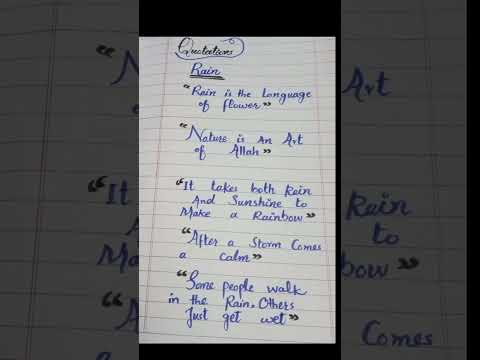 Quotations
Rain
"Rain is the Language
of flower"
"Nature is An Art
of Allah"
"It takes both Rain
And Sunshine to
Make a Rainbow"
"After a Storm Comes
a calm"
"Some people walk
in the Rain. Others
Just get wet"